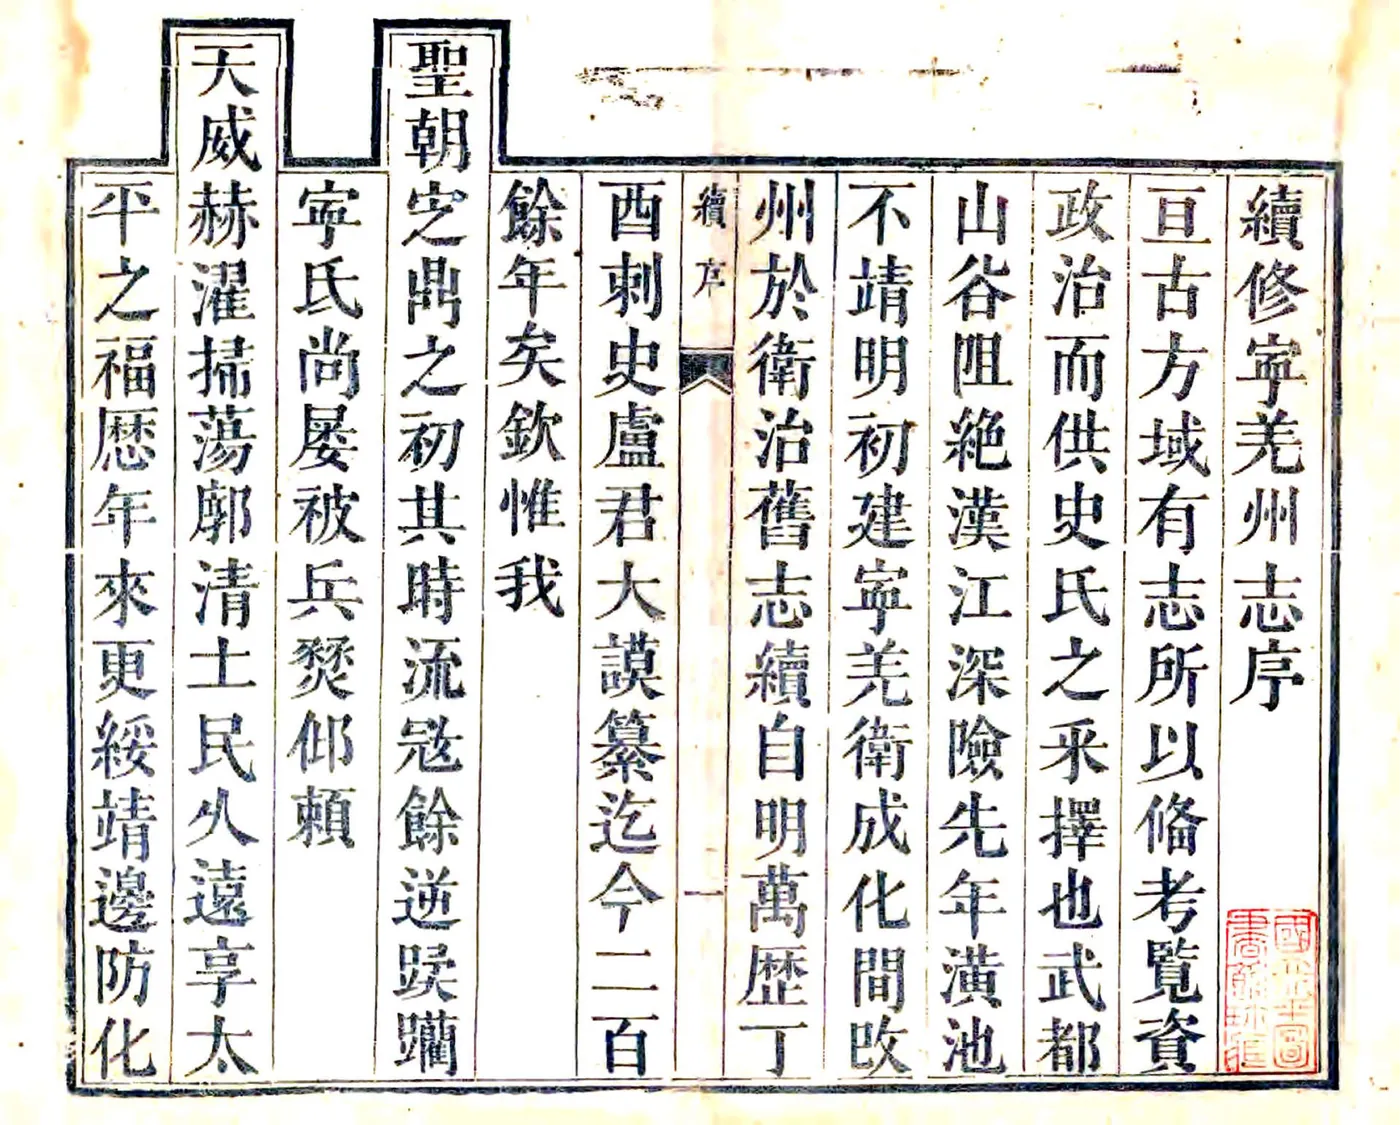 續修寕羌州志序
亘古方域有志所以俻考覽資
政治而供史氏之采擇也武都
山谷阻絶漢江深險先年潢池
不靖明初建寕羌衛成化間改
州於衛治舊志續自明萬歴丁
續序 一
酉刺史盧君大謨纂迄今二百
餘年矣欽惟我
聖朝定鼎之初其時流寇餘逆蹂躪
寕氏尚屡被兵燹仰頼
天威赫濯掃蕩廓清土民久遠享太
平之福歴年來更綏靖邊防化
國立北平圖
書館珍藏